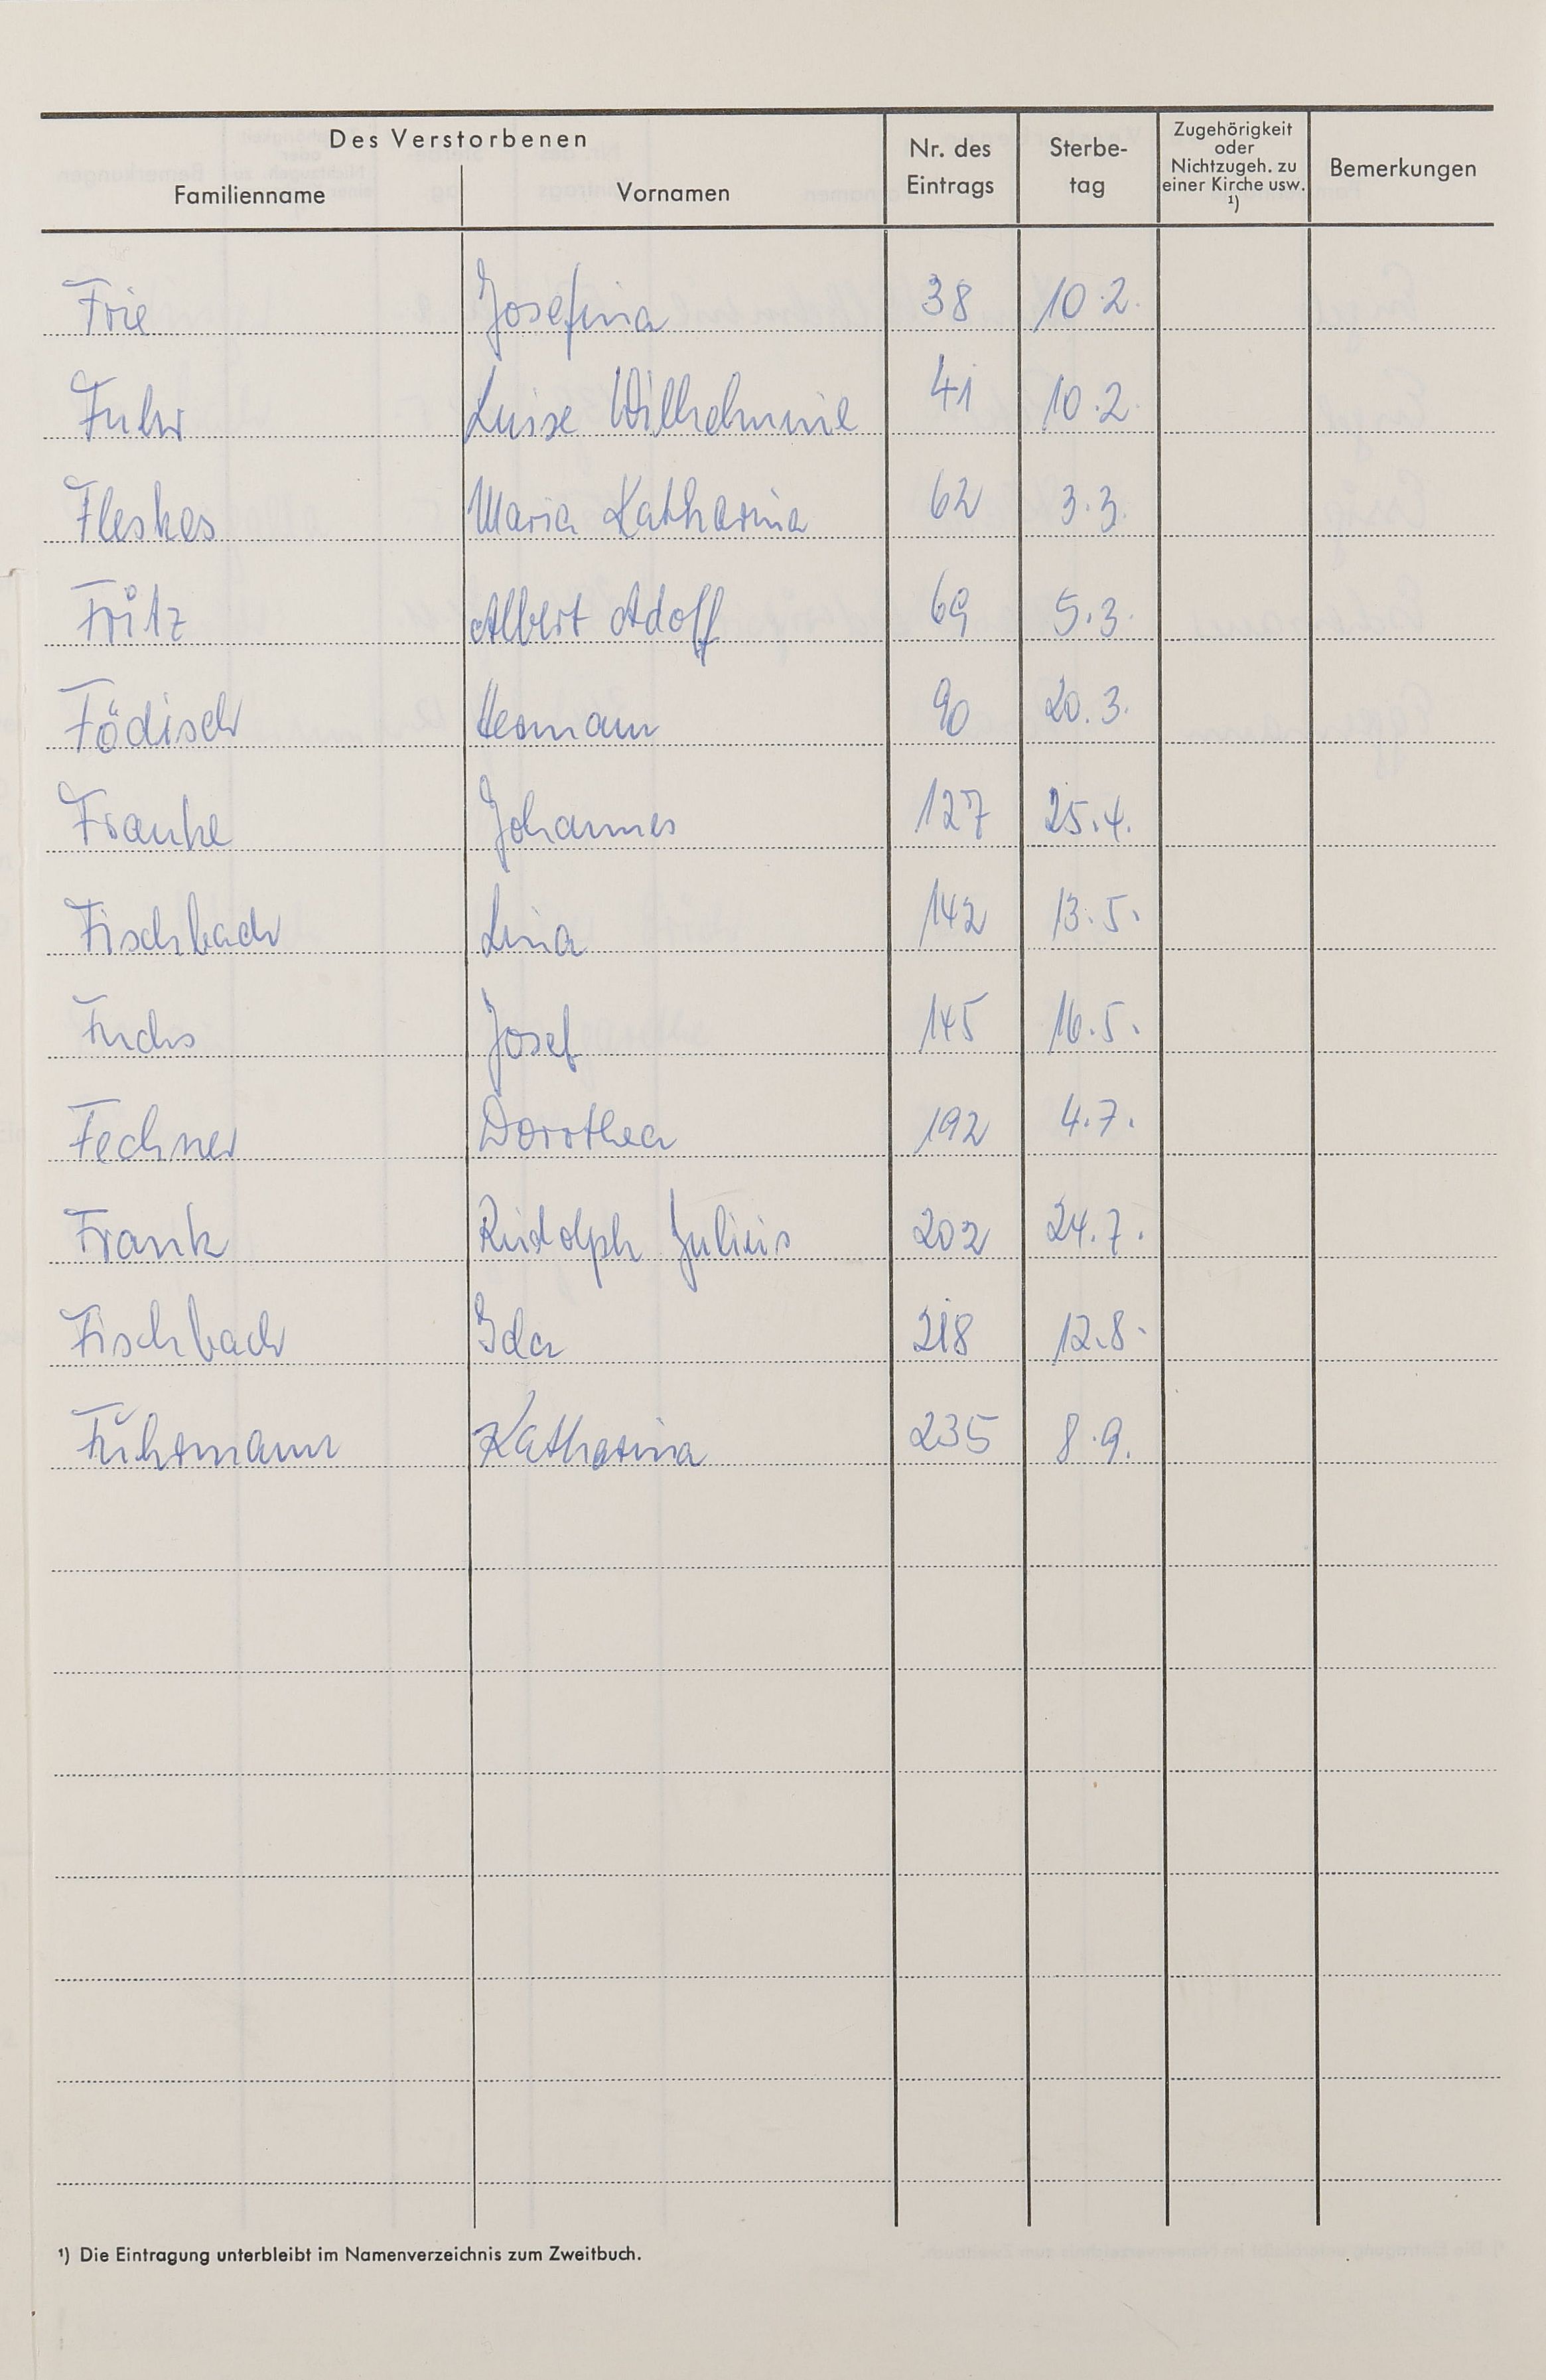 Des Verstorbenen
Familienname Vornamen Nr. des Eintrags Sterbe-tag Zugehörigkeit oder Nichtzugeh. zu einer Kirche usw. ¹) Bemerkungen
Frie Josefina 38 10.2.
Fuhr Luise Wilhelmine 41 10.2.
Fleskes Maria Katharina 62 3.3.
Fritz Albert Adolf 69 5.3.
Födisch Hermann 90 20.3.
Franke Johannes 127 25.4.
Fischbach Lina 142 13.5.
Fuchs Josef 145 16.5.
Fechner Dorothea 192 4.7.
Frank Rudolph Julius 202 24.7.
Fischbach Ida 218 12.8.
Fuhrmann Katharina 235 8.9.
¹) Die Eintragung unterbleibt im Namenverzeichnis zum Zweitbuch.